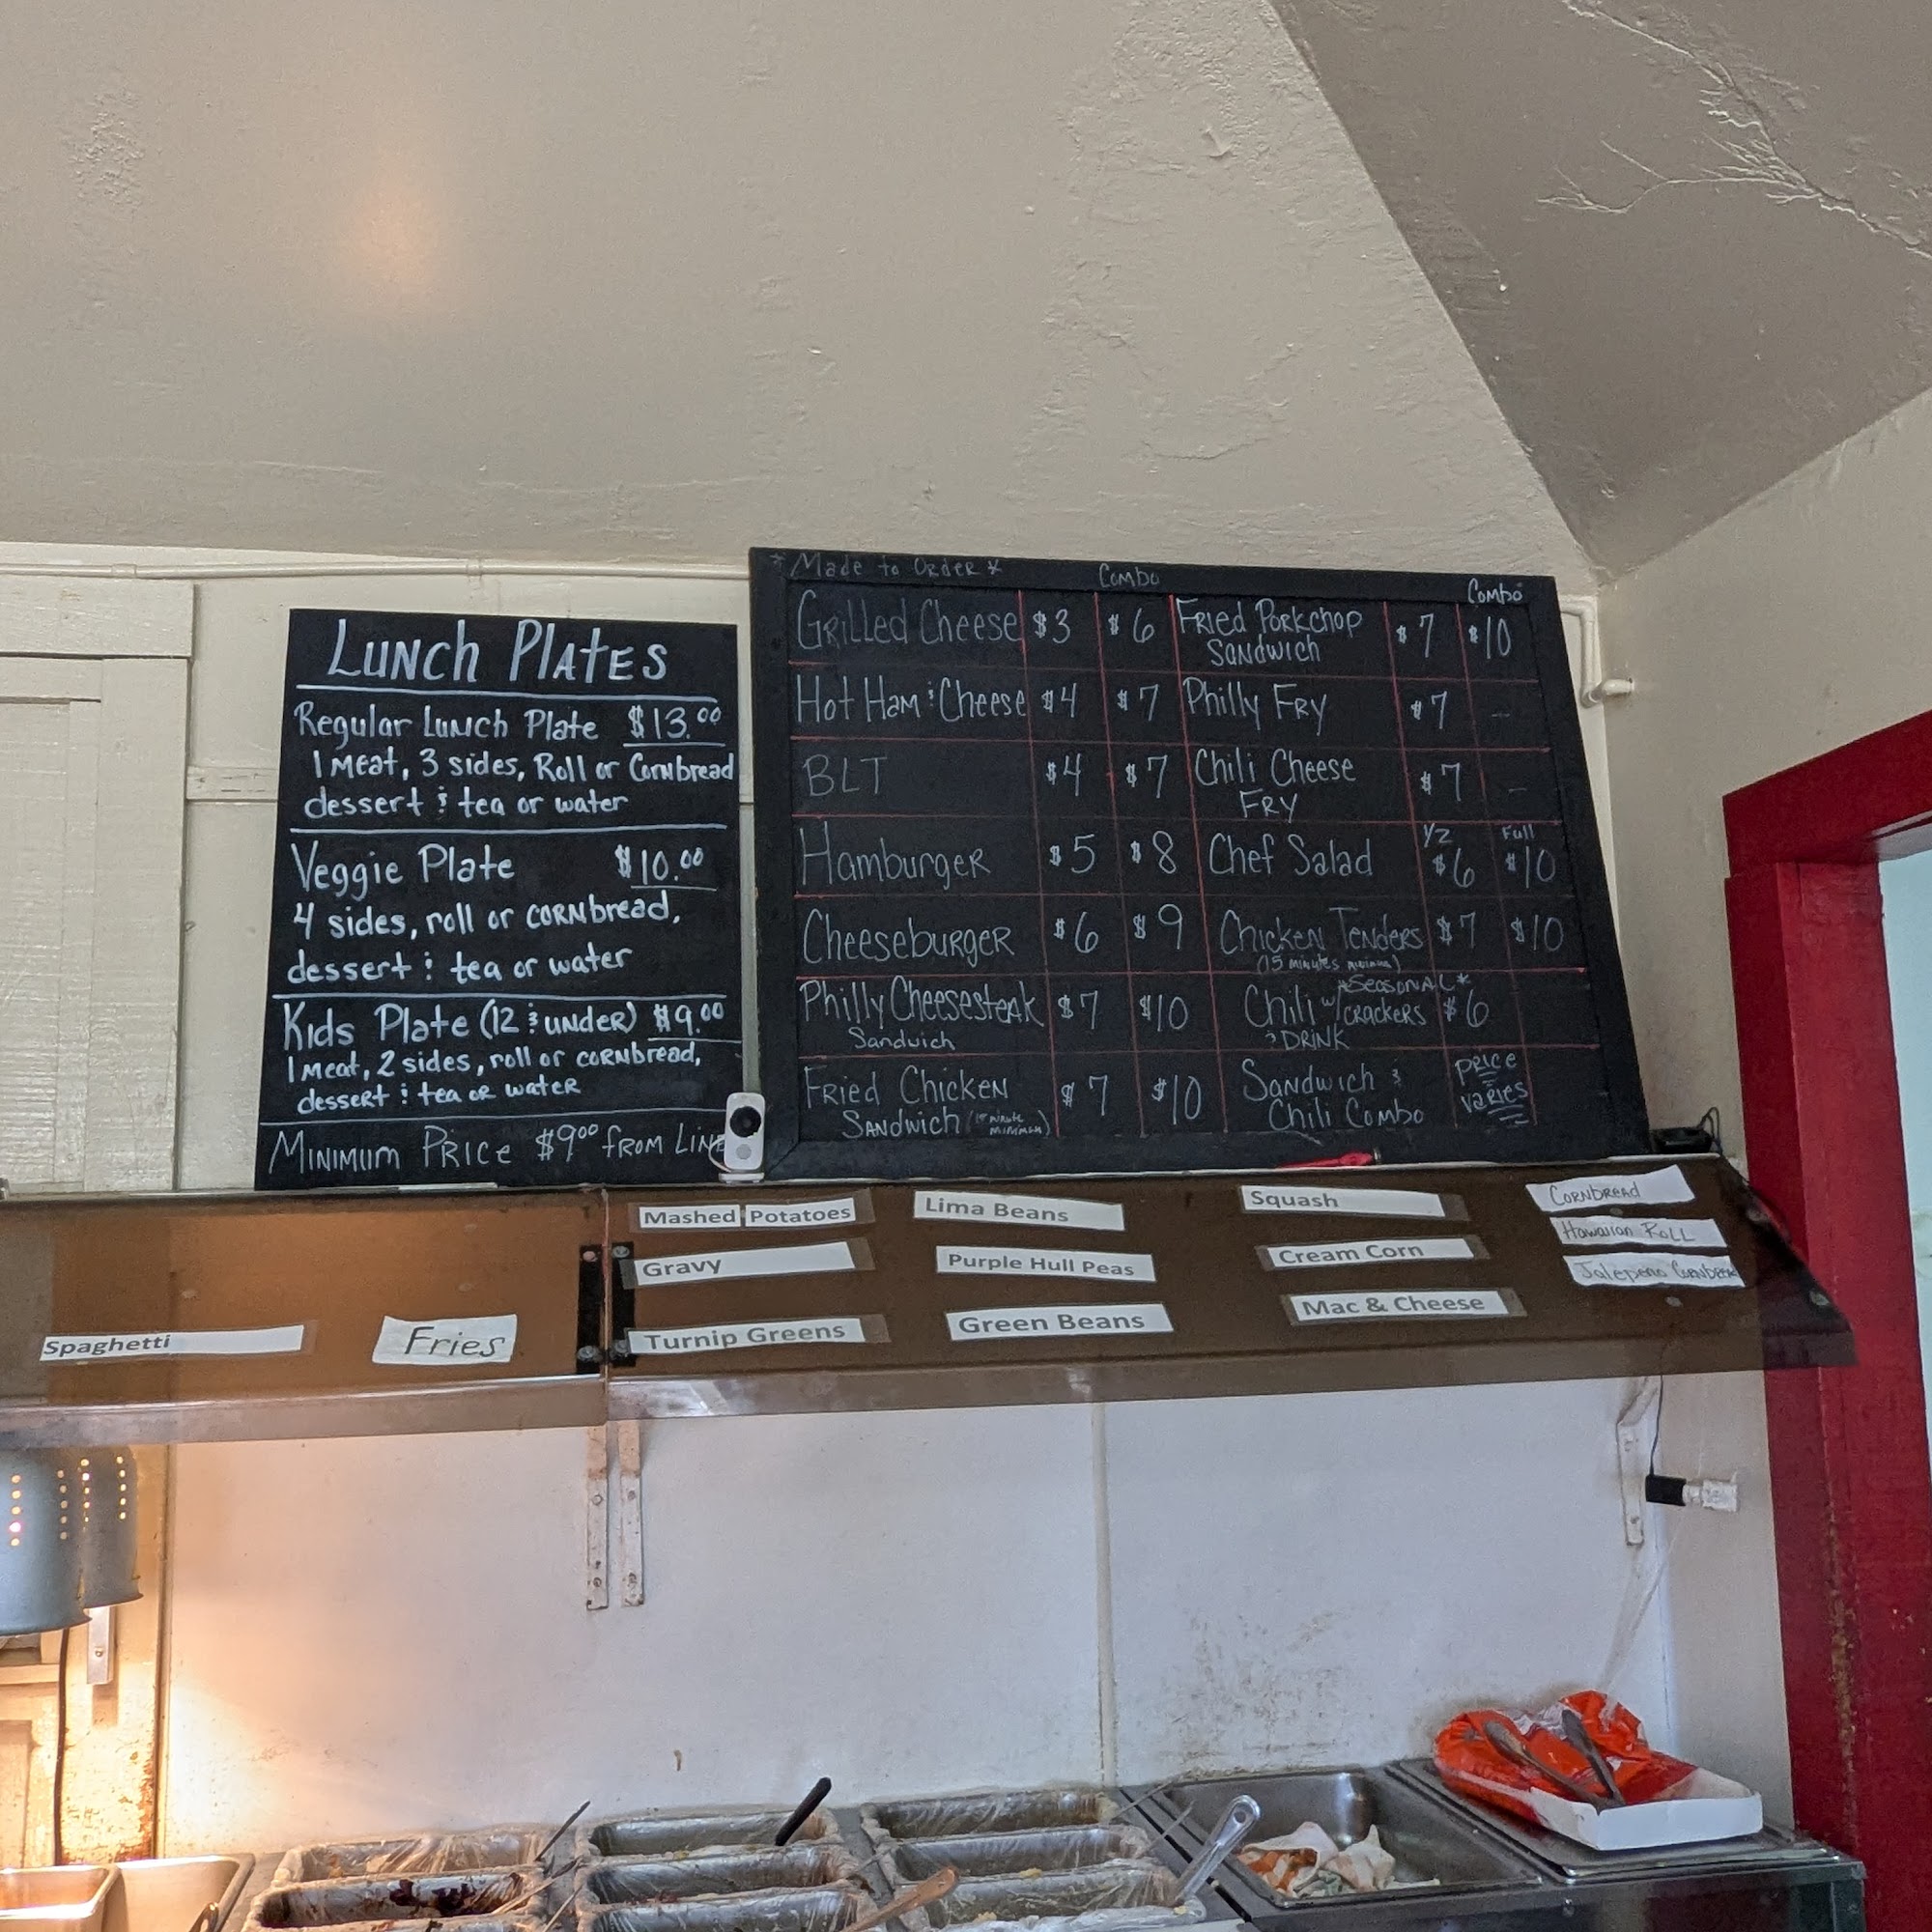 Lunch Plates
Regular Lunch Plate $13.00
1 Meat, 3 sides, Roll or Cornbread
dessert & tea or water
Veggie Plate $10.00
4 sides, roll or cornbread,
dessert & tea or water
Kids Plate (12 & under) $9.00
1 Meat, 2 sides, roll or cornbread,
dessert & tea or water
Minimum Price $9.00 from Line
* Made to Order *
Combo
Combo
Grilled Cheese $3 $6
Hot Ham & Cheese $4 $7
BLT $4 $7
Hamburger $5 $8
Cheeseburger $6 $9
Philly Cheesesteak $7 $10
Sandwich
Fried Chicken $7 $10
Sandwich (15 minute
minimum)
Fried Porkchop $7 $10
Sandwich
Philly Fry $7 -
Chili Cheese $7 -
Fry
1/2 Full
Chef Salad $6 $10
Chicken Tenders $7 $10
(15 minutes minimum)
*Seasonal*
Chili w/ crackers $6
& Drink
Sandwich & Price
Chili Combo varies
Spaghetti
Fries
Mashed Potatoes
Gravy
Turnip Greens
Lima Beans
Purple Hull Peas
Green Beans
Squash
Cream Corn
Mac & Cheese
Cornbread
Hawaiian Roll
Jalepeno